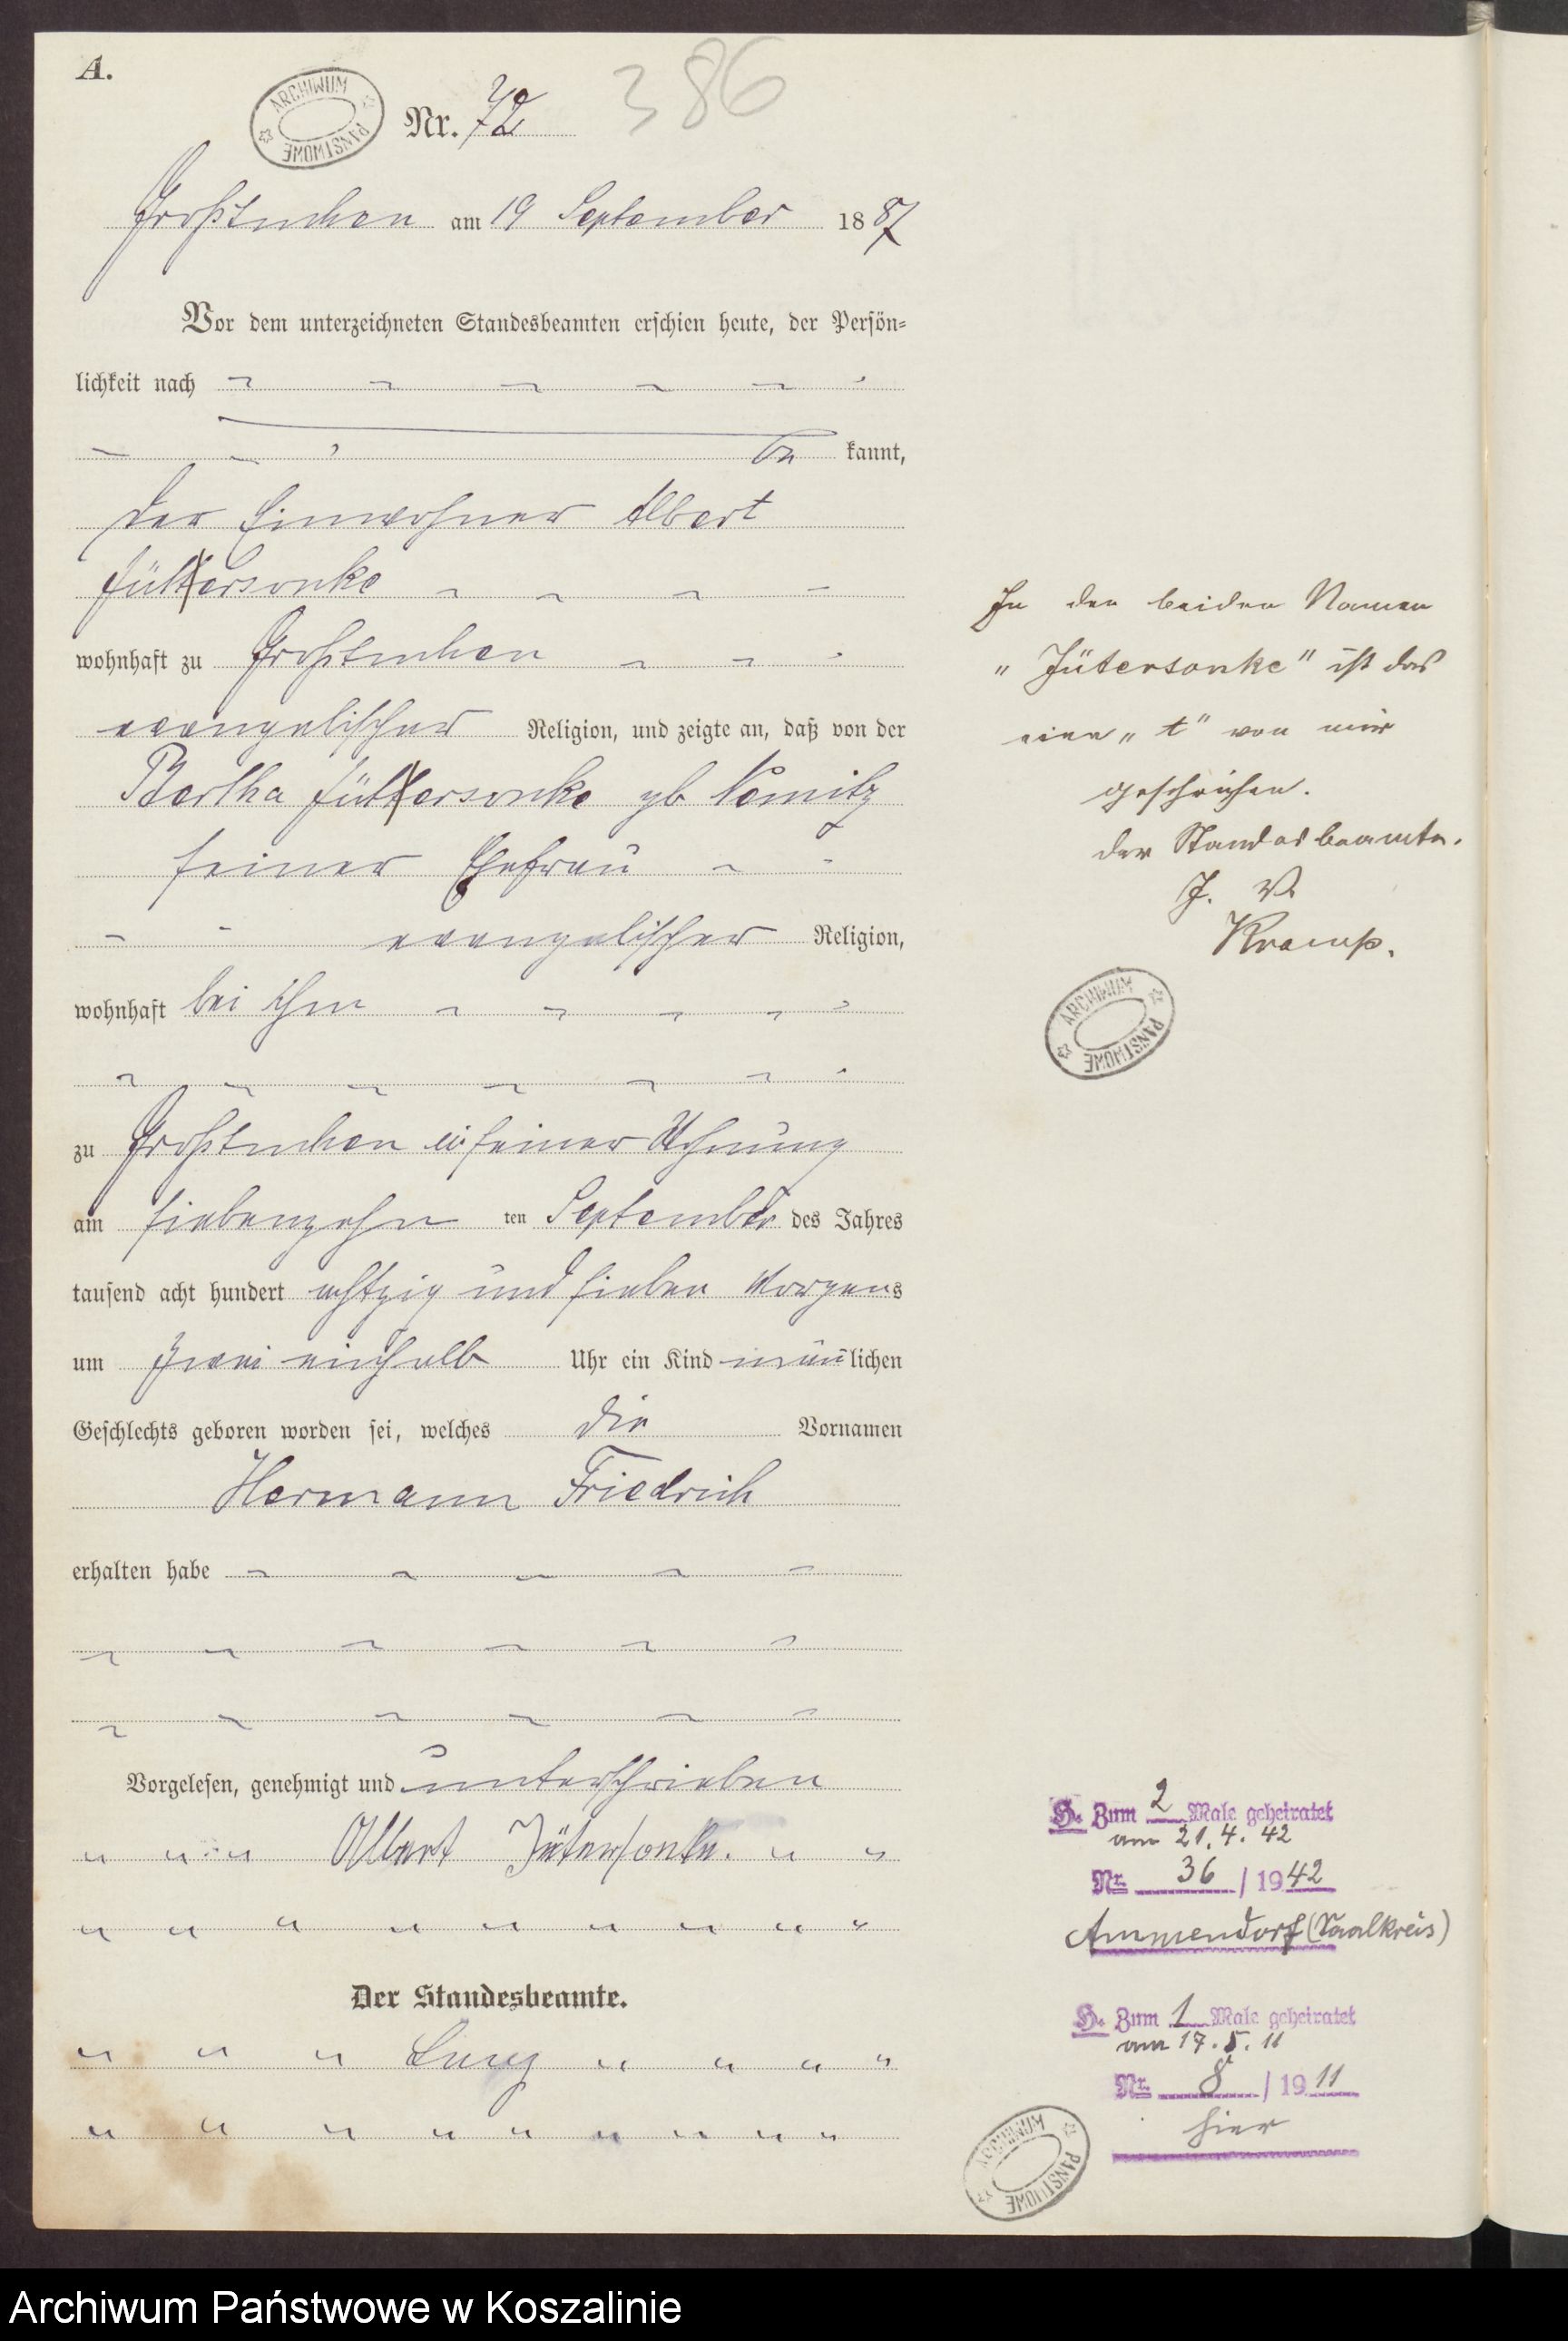 A.
ARCHIWUM PAŃSTWOWE
386
Nr. 72
Großtuchen am 19 September 1887
Vor dem unterzeichneten Standesbeamten erschien heute, der Persön=
lichkeit nach
be kannt,
der Einwohner Albert
Jüttersonke
wohnhaft zu Großtuchen
evangelischer Religion, und zeigte an, daß von der
Bertha Jüttersonke gb Nemitz
seiner Ehefrau
evangelischer Religion,
wohnhaft bei ihm
zu Großtuchen in seiner Wohnung
am siebenzehn ten September des Jahres
tausend acht hundert achtzig und sieben Morgens
um zwei einhalb Uhr ein Kind männlichen
Geschlechts geboren worden sei, welches die Vornamen
Hermann Friedrich
erhalten habe
Vorgelesen, genehmigt und unterschrieben
Albert Jütersonke.
Der Standesbeamte.
In den beiden Namen
"Jütersonke" ist das
eine "t" von mir
gestrichen.
der Standesbeamte.
J. V.
Kramp.
ARCHIWUM PAŃSTWOWE
H. Zum 2 Male geheiratet
am 21.4.42
Nr. 36 / 1942
Ammendorf (Saalkreis)
H. Zum 1 Male geheiratet
am 17.5.11
Nr. 8 / 1911
hier
ARCHIWUM PAŃSTWOWE
Archiwum Państwowe w Koszalinie